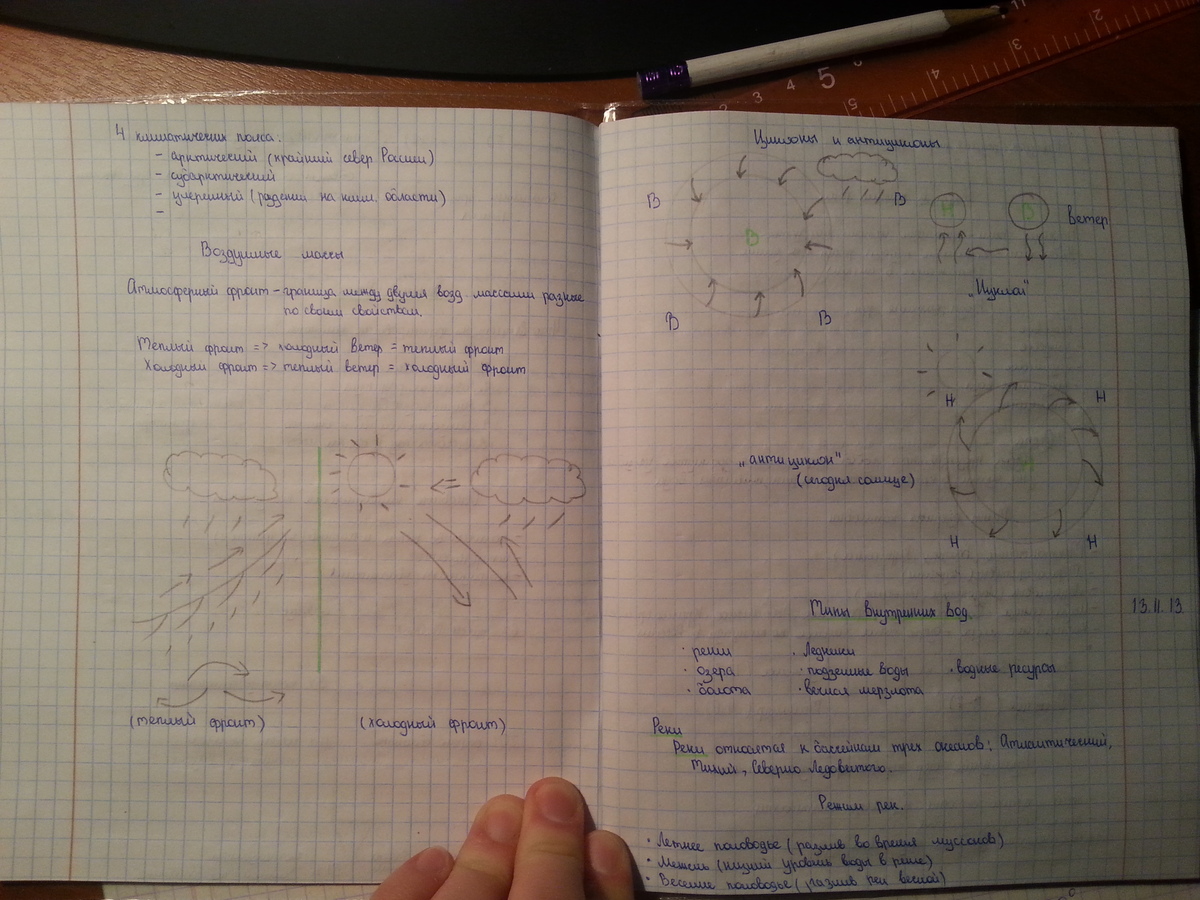 4 климатических пояса:
- арктический (крайний север России)
- субарктический
- умеренный (разделен на клим. области)
-
Воздушные массы
Атмосферный фронт - граница между двумя возд. массами разные
по своим свойствам.
Теплый фронт => холодный ветер = теплый фронт
Холодный фронт => теплый ветер = холодный фронт
(теплый фронт)
(холодный фронт)
Циклоны и антициклоны
В
В
В
В
В
Н
В
ветер
„Циклон"
Н
Н
Н
„антициклон"
(сегодня солнце)
Н
Н
Типы внутренних вод
13.11.13.
· реки
· Ледники
· озера
· подземные воды
· водные ресурсы
· болота
· вечная мерзлота
Реки
Реки относятся к бассейнам трех океанов: Атлантический,
Тихий, Северно Ледовитого.
Режим рек.
· Летнее половодье (разлив во время муссонов)
· Межень (низший уровень воды в реке)
· Весеннее половодье (разлив рек весной)